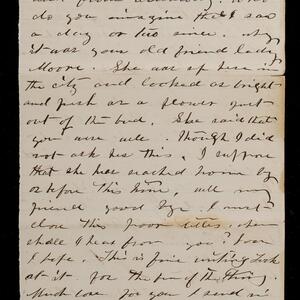 do you imagine that I saw
a day or two since, why
it was your old friend Lady
Moore. She was up here in
the city and looked as bright
and fresh as a flower just
out of the bud. She said that
you were well. Though I did
not ask her this, I suppose
that she has reached home by
or before this time, well my
friend good bye. I must
close this poor letter, when
shall I hear from you? soon
I hope. This is fine writing look
at it. for the fun of the thing.
Much love for you I send in